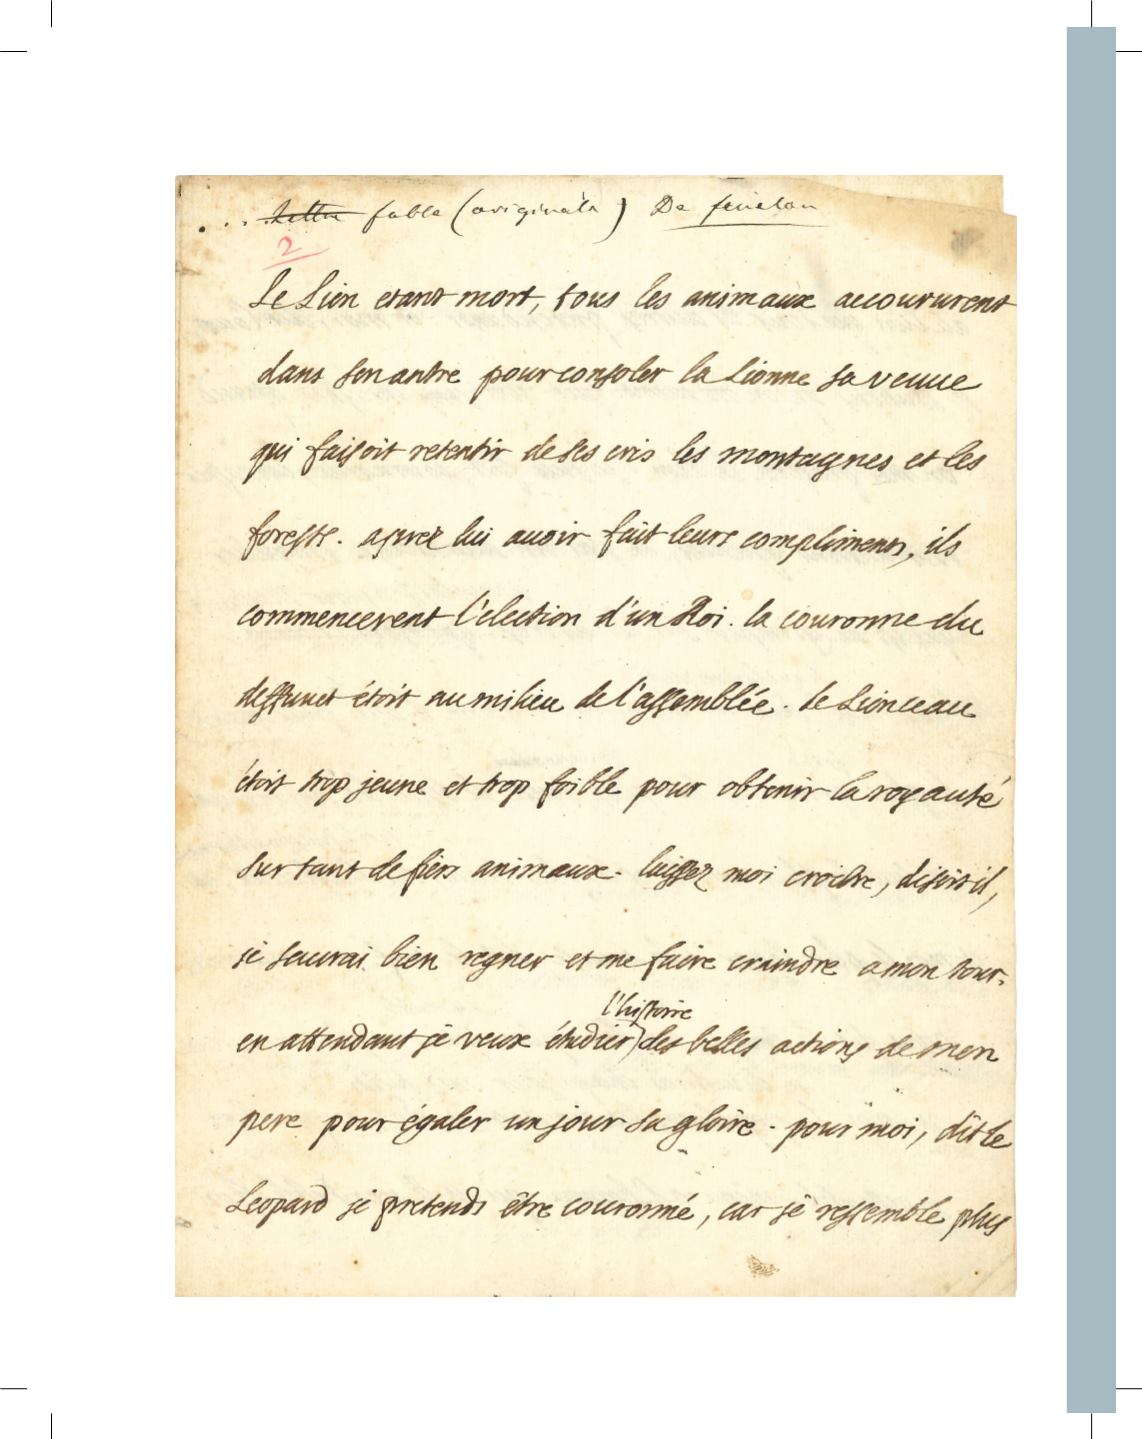 ... ~~Lettre~~ fable (originale) De fenelon
2
Le Lion etant mort, tous les animaux accoururent
dans son antre pour consoler la Lionne sa veuue
qui faisoit retentir de ses cris les montagnes et les
forests. aprez lui auoir fait leurs compliments, ils
commencerent l'election d'un Roi. la couronne du
deffunct étoit au milieu de l'assemblée. le Lionceau
étoit trop jeune et trop foible pour obtenir la royauté
sur tant de fiers animaux. laissez moi croitre, disoit il,
je saurai bien regner et me faire craindre a mon tour.
l'histoire
en attendant je veux étudier) des belles actions de mon
pere pour égaler un jour sa gloire. pour moi, dit le
Leopard je pretends être couronné, car je ressemble plus